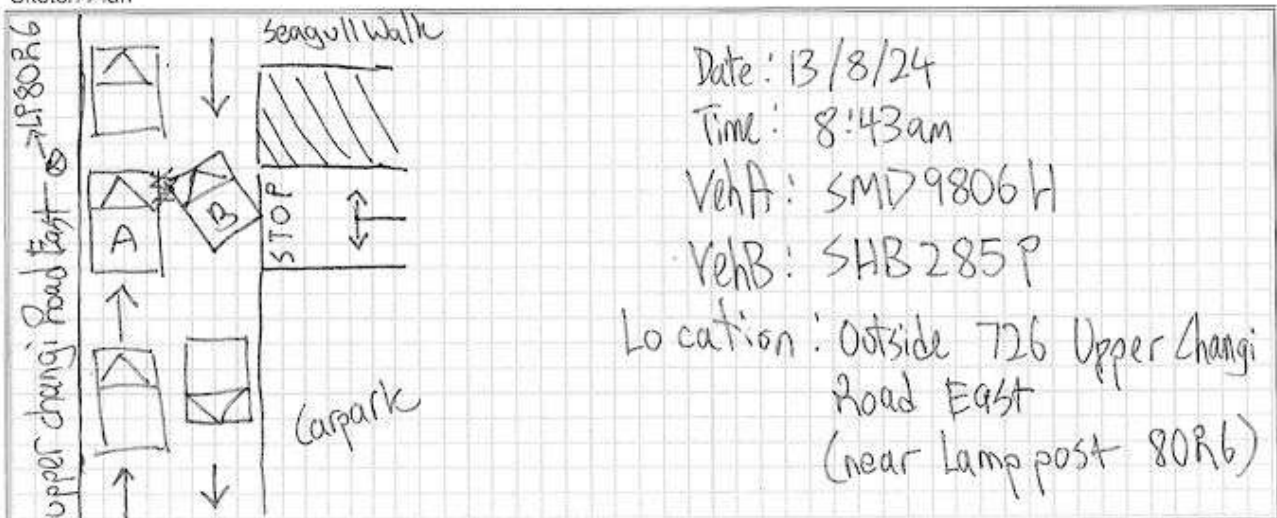 Seagull Walk
upper changi Road East → LP80R6
A
B
STOP
Carpark
Date: 13/8/24
Time: 8:43am
VehA: SMD9806H
VehB: SHB285P
Location: Outside 726 Upper Changi
Road East
(near Lamp post 80R6)